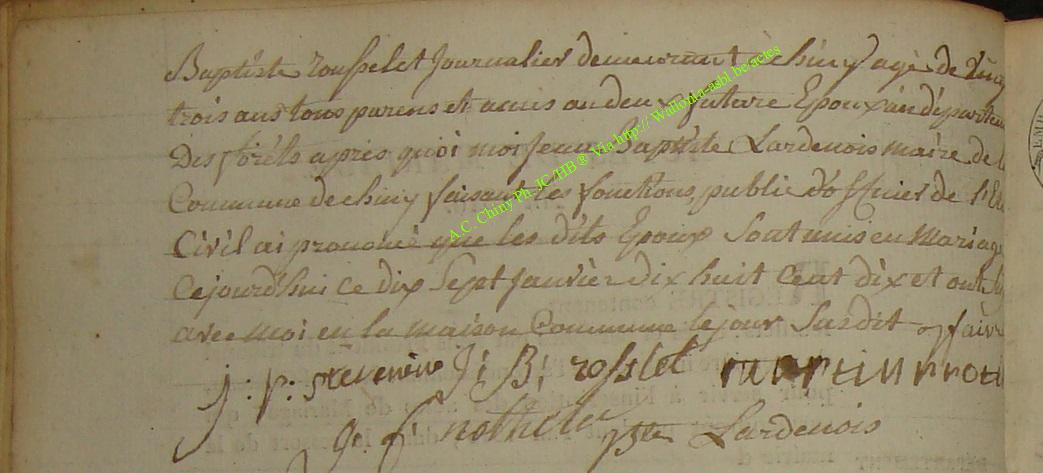 Baptiste rousselet Journalier demeurant à chiny agé de vingt
trois ans tous parens et amis au deux future Epoux in département
Des forêts apres quoi moi Jean Baptiste Lardenois maire de la
Commune de chiny faisant les fonctions, public d'officier de l'Etat
Civil ai prononcé que les dits Epoux Sont unis en mariage
Cejourd'hui ce dix Sept Janvier dix huit cent dix et ont
avec moi en la maison Commune le jour Susdit
j: p: J; B; rosslet martin
g. f. Lardenois
A.C. Chiny Ph. JC/HB ® Via http:// Wallonia-asbl.be/actes